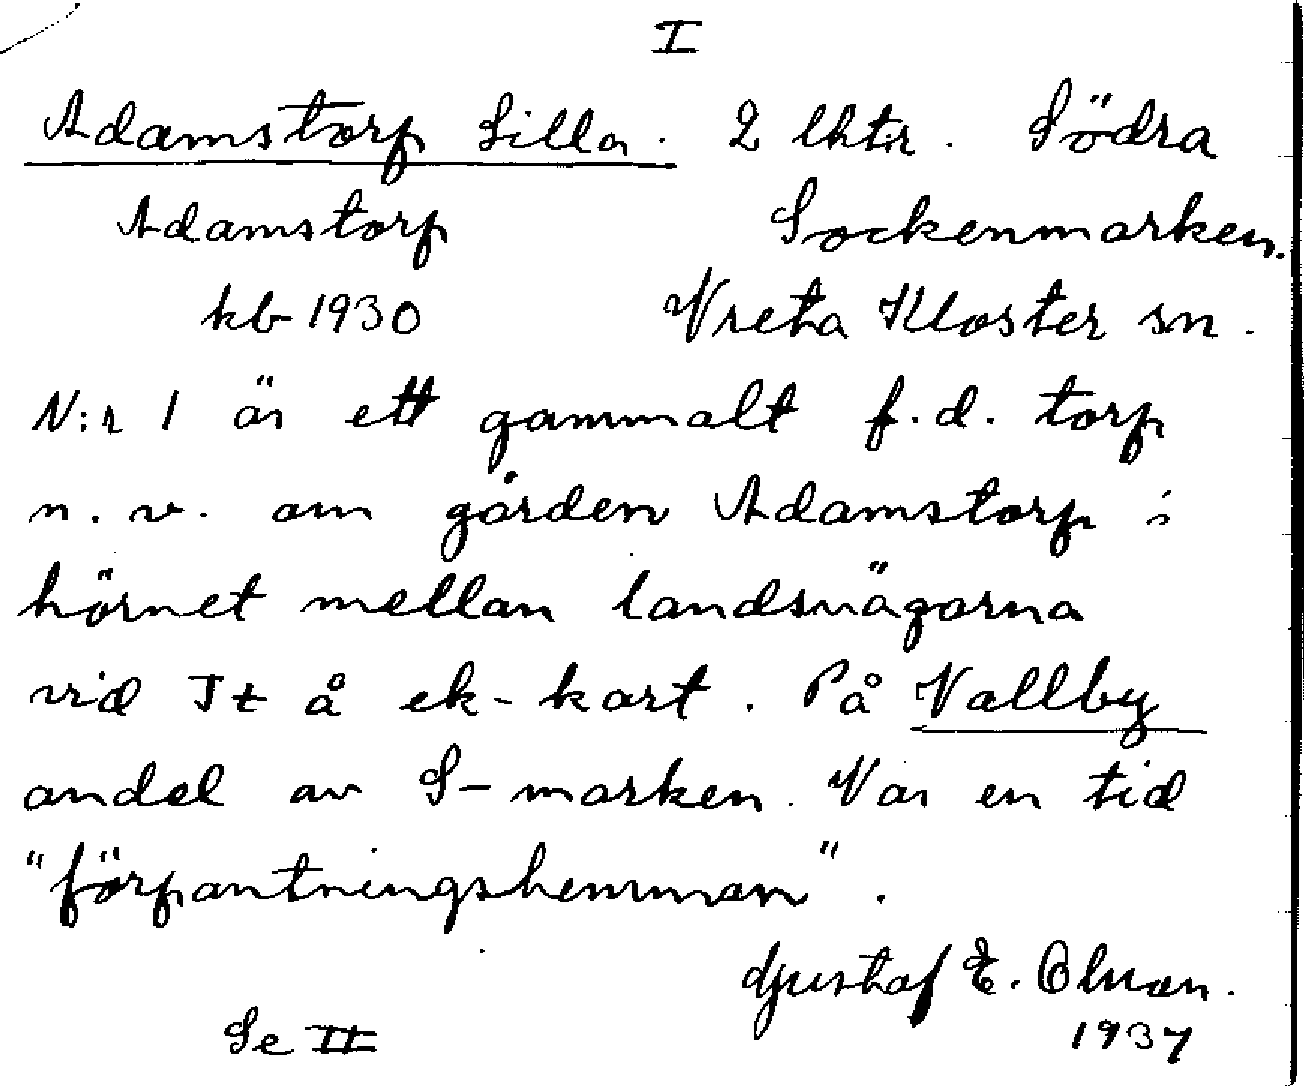 I
Adamstorp Lilla. 2 lhtr. Södra
Adamstorp Sockenmarken.
kb 1930 Vreta Kloster sn.
N:r 1 är ett gammalt f.d. torp
n.v. om gården Adamstorp i
hörnet mellan landsvägarna
vid Jt å ek-kart. På Vallby
andel av S-marken. Var en tid
"förpantningshemman".
Gustaf E. Olsson.
Se II 1937